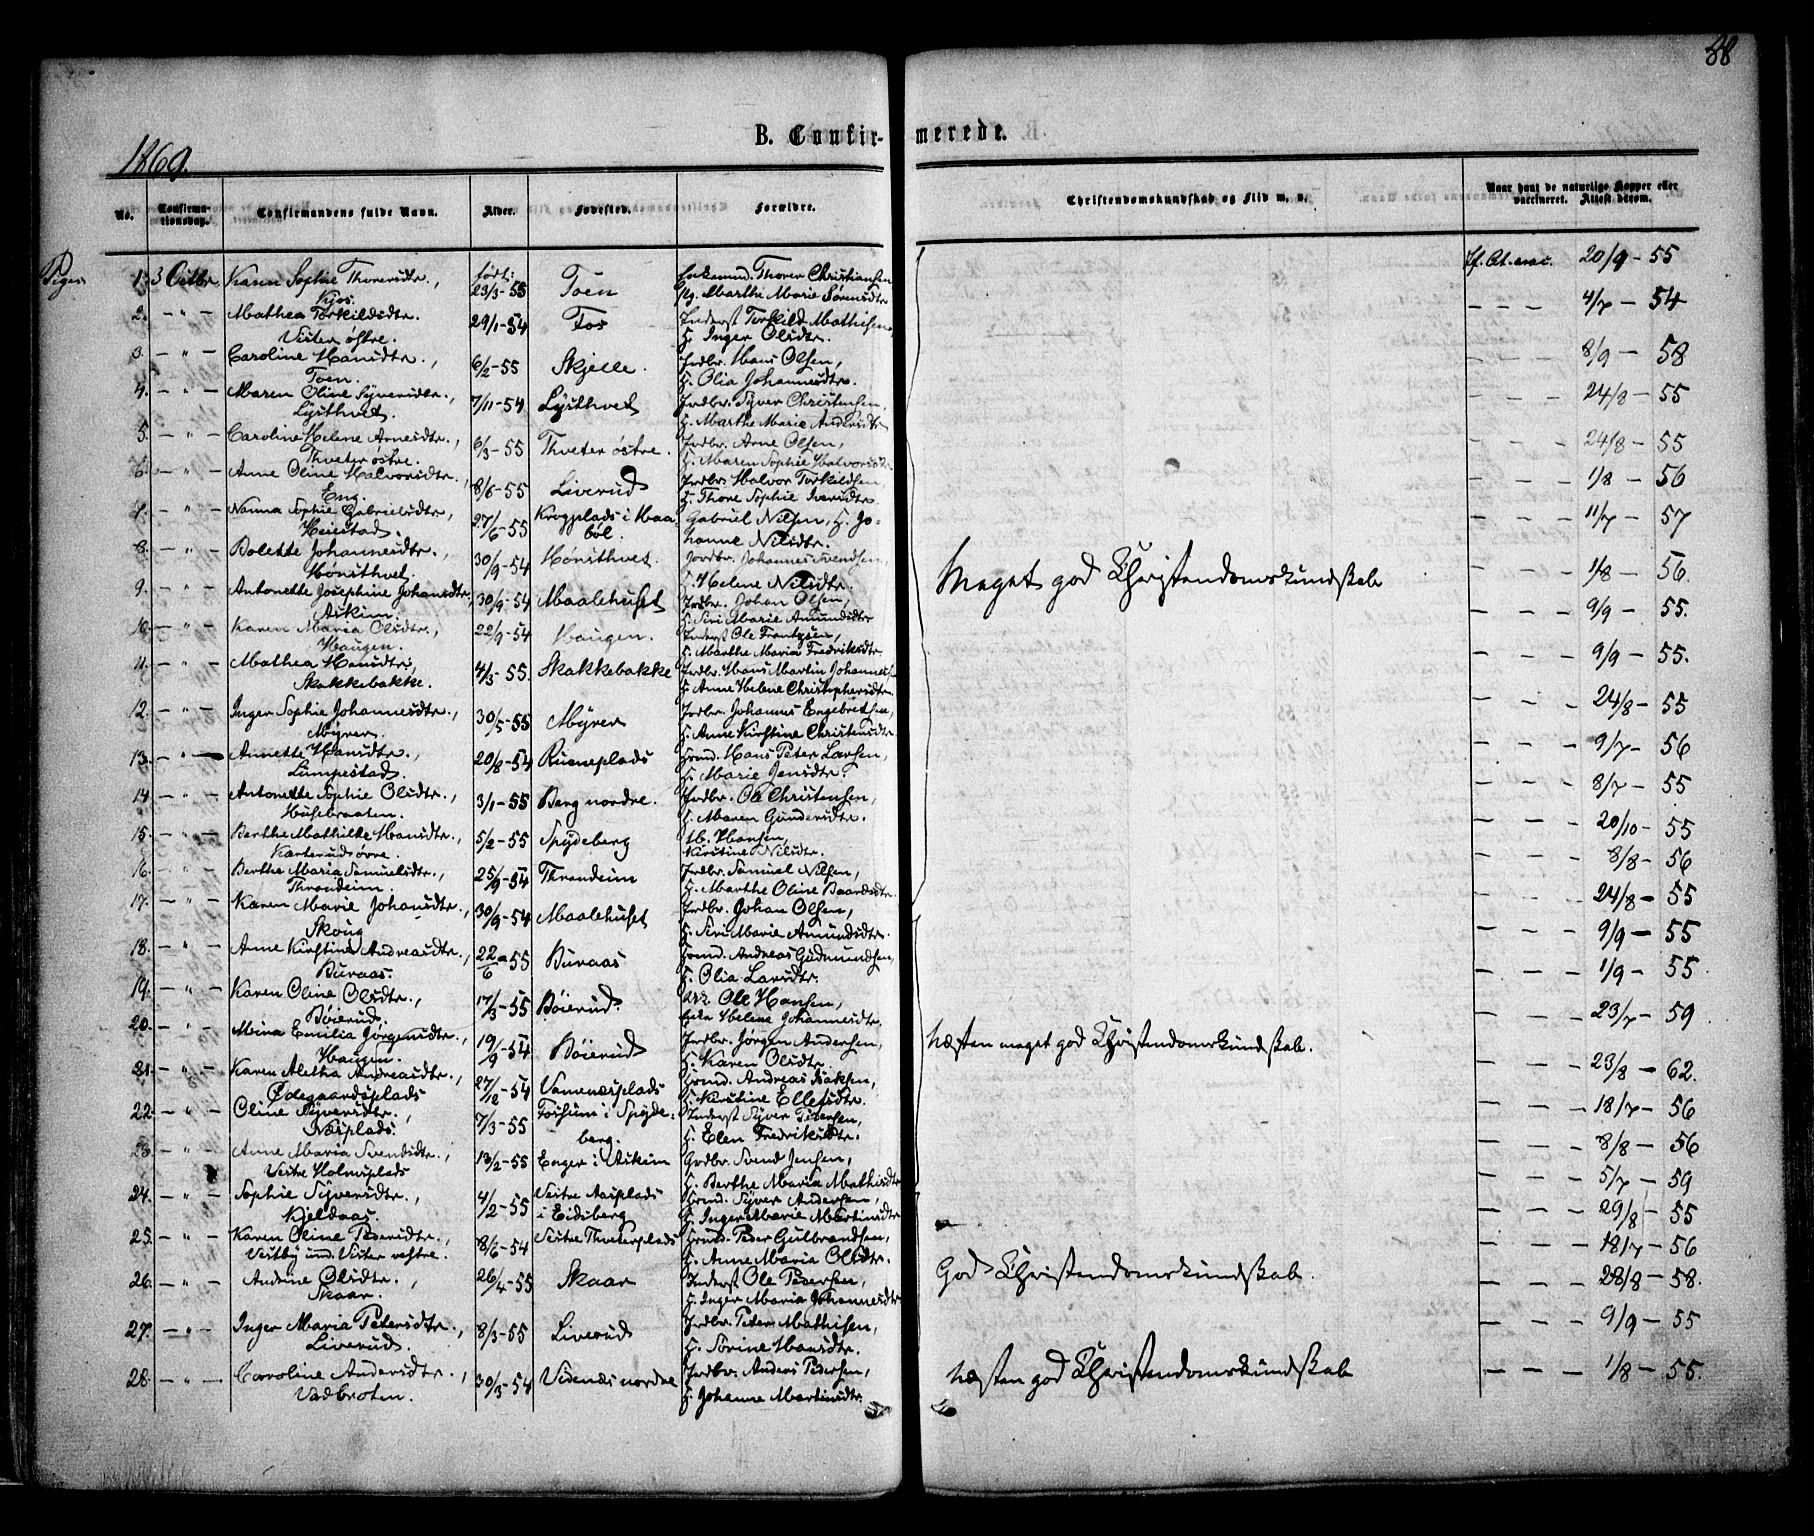 88
B. Confirmerede.
1869.
No. Confirmationsdag. Confirmandens fulde Navn. Alder. Fødested. Forældre. Christendomskundskab og Flid m. v. Naar havt de naturlige Kopper eller vaccineret. Attest derom.
Piger
1. 3 Octbr. Karen Sophie Thoresdtr., Kjos. født: 23/3-55 Toen Thorer Christiansen Marthe Marie Sørensdtr 20/9-55
2. - " - Mathea Torkildsdtr. Vester østre. 29/1-54 Fos Inderst Torkild Mathisen, H. Inger Olsdtr. - - - 4/7-54
3. - " - Caroline Hansdtr., Toen. 6/2-55 Skjelle. Jrdbr. Hans Olsen, H. Olia Johannesdtr. - - - 8/9-58
4. - " - Maren Oline Syversdtr., Lysthvet. 7/11-54 Lysthvet Jrdbr. Syver Christensen, H. Marthe Marie Andersdtr - - - 24/8-55
5. - " - Caroline Helene Arnesdtr., Thveter østre. 6/3-55 Thveter østre. Jrdbr. Arne Olsen, H. Maren Sophie Halvorsdtr - - - 24/8-55
6. - " - Anne Oline Halvorsdtr., Eng. 8/6-55 Liverud Jrdbr. Halvor Torkildsen, H. Thore Sophie Iversdtr - - - 1/8-56
7. - " - Nanna Sophie Gabrielsdtr., Heiestad. 27/6-55 Krogplads i Haabøl. Gabriel Nilsen, H. Johanne Nilsdtr. - - - 11/7-57
8. - " - Bolette Johannesdtr., Hønsthvet. 30/9-54 Hønsthvet. Jordbr. Johannes Svendsen, H. Helene Nilsdtr. - - - 1/8-56.
Meget god Christendomskundskab
9. - " - Antonette Josephine Johansdtr, Askim. 30/9-54 Maalehuset Jrdbr. Johan Olsen, H. Siri Marie Amundsdtr - - - 9/9-55.
10. - " - Karen Maria Olsdtr., Haugen. 22/9-54 Haugen. Inderst Ole Frantzsen, H. Marthe Maria Fredriksdtr - - - 9/9-55.
11. - " - Mathea Hansdtr, Skakkebakke. 4/3-55. Skakkebakke Jrdbr. Hans Martin Johannessen H. Anne Helene Christophersdtr. - - - 24/8-55
12. - " - Inger Sophie Johannesdtr., Myrer. 30/5-55 Myrer Jrdbr. Johannes Engebretsen, H. Anne Kirstine Christensdtr - - - 9/7-56
13. - " - Annette Hansdtr., Lumpestad. 20/8-54 Hans Peter Larsen, H. Marie Jensdtr. - - - 8/7-55
14. - " - Antonette Sophie Olsdtr., Husebraaten. 3/1-55 Berg nordre. Jrdbr. Ole Christensen, H. Maren Gundersdtr. - - - 20/10-55
15. - " - Berthe Mathilde Hansdtr., Karterud øvre. 5/2-55 Spydeberg Hansen, Kirstine Nilsdtr. - - - 8/8-56
16. - " - Berthe Maria Samuelsdtr., Throndeim. 25/9-54 Throndeim Jrdbr. Samuel Nilsen, H. Marthe Oline Baardsdtr - - - 24/8-55
17. - " - Karen Marie Johansdtr., Skoug 30/9-54 Maalehuset Jrdbr. Johan Olsen, H. Siri Marie Amundsdtr. - - - 9/9-55
18. - " - Anne Kirstine Andreasdtr., Buraas. 22/6-55 Buraas Andreas Gudmundsen, H. Olia Larsdtr. - - - 1/9-55
19. - " - Karen Oline Olsdtr., Bøierud. 17/3-55 Bøierud Ole Hansen, Helene Johannesdtr. - - - 23/7-59
20. - " - Meina Emilia Jørgensdtr., Haugen. 19/9-54 Bøierud Jrdbr. Jørgen Andersen, H. Karen Olsdtr. Næsten meget god Christendomskundskab. - - - 23/8-62.
21. - " - Karen Aletha Andreasdtr., Ødegaardsplads 27/12-54 Vamnæsplads Andreas Isaksen, H. Kirstine Ellefsdtr. - - - 18/7-56
22. - " - Oline Syversdtr., Næsplads. 7/3-55 Fossum i Spydeberg. Inderst Syver Petersen, H. Elen Fredriksdtr. - - - 8/8-56
23. - " - Anne Maria Svendsdtr., Vestre Holmsplads 13/2-55 Enger i Askim Grdbr. Svend Jensen, H. Berthe Maria Mathisdtr - - - 5/7-59
24. - " - Sophie Syversdtr., Kjeldaas. 4/2-55 Vestre Aasplads i Eidsberg Syver Andersen, H. Inger Marie Martinsdtr - - - 29/8-55
25. - " - Karen Oline Pedersdtr., Vestby ind. Vister vestre. 8/6-54 Vestre Thveterplads Peder Gulbrandsen, H. Anne Maria Olsdtr. - - - 18/7-56
26. - " - Andine Olsdtr., Skaar. 26/4-55 Skaar Inderst Ole Pedersen, H. Inger Maria Johannesdtr God Christendomskundskab. - - - 28/8-58.
27. - " - Inger Maria Petersdtr., Liverud. 8/3-55 Liverud Jrdbr. Peter Mathisen, H. Sørine Hansdtr. - - - 9/9-55
28. - " - Caroline Andersdtr., Vadbroten. 30/3-54 Videnæs nordre Jrdbr. Anders Pedersen, H. Johanne Martinsdtr. Næsten god Christendomskundskab - - - 1/8-55.